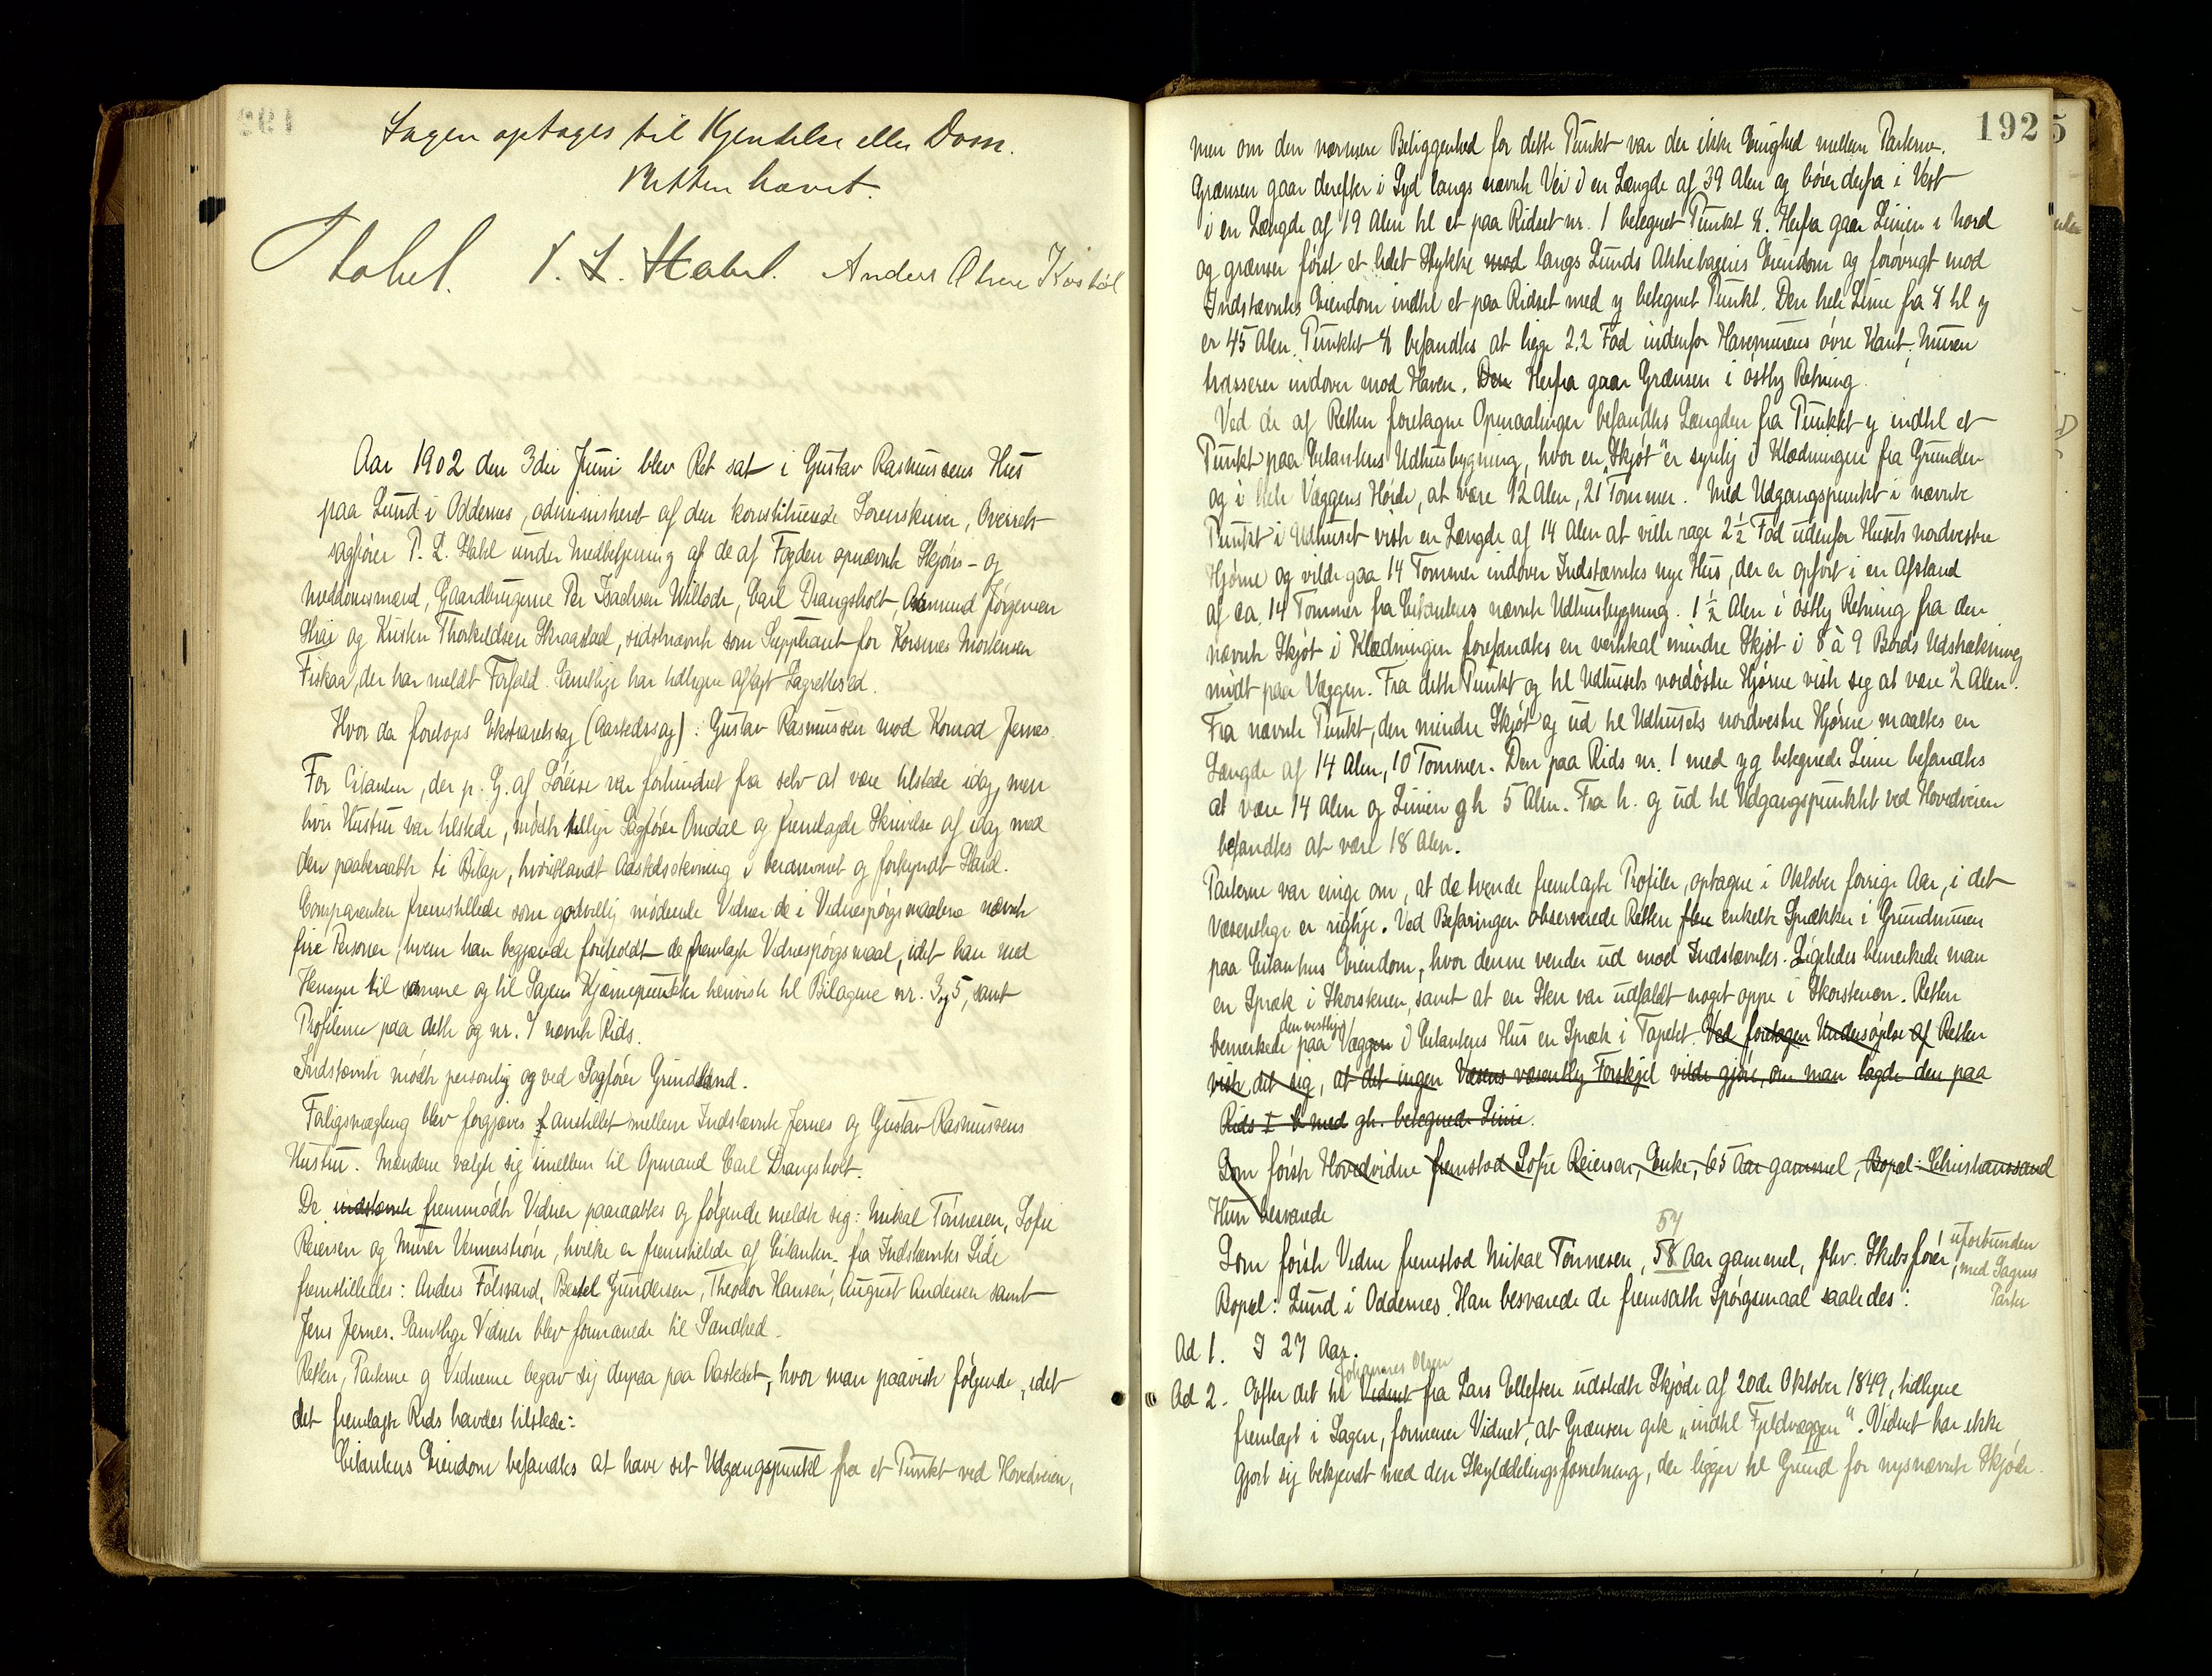 Sagen optages til Kjendelse eller Dom.
Retten hævet.
Stabel. P. L. Stabel. Anders Olsen
Aar 1902 den 3die Juni blev Ret sat i Gustav Rasmussens Hus
paa Lund i Oddernes, administreret af den konstituerede Sorenskriver, Overrets-
sagfører P. L. Stabel under Medbetjening af de af Fogden opnævnte Skjøns- og
Meddomsmænd, Gaardbrugerne Per Isachsen Willode, Carl Drangsholt, Aamund Jørgensen
Strai og Kristen Thorkildsen Skraastad, sidstnævnte som Suppleant for Korsnes Mortensen
Fiskaa, der har meldt Forfald. Samtlige har tidligere aflagt Lagrettesed.
Hvor da foretoges Ekstraretssag (Aastedssag): Gustav Rasmussen mod Konrad Jernes.
For Citanten, der p. G. af Søreise var forhindret fra selv at være tilstede idag, men
hvis Hustru var tilstede, mødte tillige Sagfører Omdal og fremlagde Skrivelse af idag med
den paaberaabte ti Bilage, hvoriblandt Aastedsstevning i berammet og forkyndt Stand.
Comparenten fremstillede som godvillig mødende Vidner de i Vidnespørgsmaalene nævnte
fire Personer, hvem han begjærede foreholdt de fremlagte Vidnespørgsmaal, idet han med
Hensyn til samme og til Sagens Kjærnepunkter henviste til Bilagene nr. 3 og 5, samt
Profilerne paa dette og nr. 7 nævnte Rids.
Indstævnte mødte personlig og ved Sagfører Grundeland.
Forligsmægling blev forgjæves anstillet mellem Indstævnte Jernes og Gustav Rasmussens
Hustru. Mændene valgte sig imellem til Opmand Carl Drangsholt.
De indstævnte fremmødte Vidner paaraabtes og følgende meldte sig: Mikal Tønnesen, Sofie
Reiersen og Murer Vennerstrøm, hvilke er fremstillede af Citanten, fra Indstævntes Side
fremstilledes: Anders Følsvand, Bertel Gundersen, Theodor Hansen, August Andersen samt
Jens Jernes. Samtlige Vidner blev formanede til Sandhed.
Retten, Parterne og Vidnerne begav sig derpaa paa Aastedet, hvor man paaviste følgende, idet
det fremlagte Rids havdes tilstede:
Citantens Eiendom befandtes at have sit Udgangspunkt fra et Punkt ved Hovedveien,
192
men om den nærmere Beliggenhed for dette Punkt var der ikke Enighed mellem Parterne.
Grænsen gaar derefter i Syd langs nævnte Vei i en Længde af 39 Alen og bøier derfra i Vest
i en Længde af 19 Alen til et paa Ridset nr. 1 betegnet Punkt x. Herfra gaar Linien i Nord
og grænser først et lidet Stykke mod langs Lunds Aktiebageris Eiendom og forøvrigt mod
Indstævntes Eiendom indtil et paa Ridset med y betegnet Punkt. Den hele Linie fra x til y
er 45 Alen. Punktet x befandtes at ligge 2.2 Fod indenfor Havemurens øvre Kant. Muren
trasserer indover mod Haven. Den Herfra gaar Grænsen i østlig Retning.
Ved de af Retten foretagne Opmaalinger befandtes Længden fra Punktet y indtil et
Punkt paa Citantens Udhusbygning, hvor en "Skjøt" er synlig i Klædningen fra Grunden
og i hele Væggens Høide, at være 12 Alen, 21 Tommer. Med Udgangspunkt i nævnte
Punkt i Udhuset viste en Længde af 14 Alen at ville rage 2½ Fod udenfor Husets nordvestre
Hjørne og vilde gaa 14 Tommer indover Indstævntes nye Hus, der er opført i en Afstand
af ca. 14 Tommer fra Citantens nævnte Udhusbygning. 1½ Alen i østlig Retning fra den
nævnte Skjøt i Klædningen forefandtes en vertikal mindre Skjøt i 8 à 9 Bords Udstrækning
midt paa Væggen. Fra dette Punkt og til Udhusets nordøstre Hjørne viste sig at være 2 Alen.
Fra nævnte Punkt, den mindre Skjøt og ud til Udhusets nordvestre Hjørne maaltes en
Længde af 14 Alen, 10 Tommer. Den paa Rids nr. 1 med yg betegnede Linie befandtes
at være 14 Alen og Linien gh 5 Alen. Fra h. og ud til Udgangspunktet ved Hovedveien
befandtes at være 18 Alen.
Parterne var enige om, at de tvende fremlagte Profiler, optagne i Oktober forrige Aar, i det
væsentlige er rigtige. Ved Befaringen observerede Retten flere enkelte Sprækker i Grundmuren
paa Citantens Eiendom, hvor denne vender ud mod Indstævntes. Ligeledes bemerkede man
en Spræk i Skorstenen, samt at en Sten var udfaldt noget oppe i Skorstenen. Retten
den vestlige
bemerkede paa Væggen i Citantens Hus en Spræk i Tapetet. Ved foretagen Undersøgelse af Retten
viste det sig, at det ingen Væsens væsentlig Forskjel vilde gjøre, om man lagde den paa
Rids I med gh. betegnede Linie.
Som første Hovedvidne fremstod Sofie Reiersen, Enke, 65 Aar gammel, Bopæl: Christianssand
Hun besvarede
57
Som første Vidne fremstod Mikal Tønnesen, 58 Aar gammel, fhv. Skibsfører, uforbunden
med Sagens
Parter
Bopæl: Lund i Oddernes. Han besvarede de fremsatte Spørgsmaal saaledes:
Ad 1. I 27 Aar.
Johannes Olsen
Ad 2. Efter det til Vidnet fra Lars Ellefsen udstedte Skjøde af 20de Oktober 1849, tidligere
fremlagt i Sagen, formener Vidnet, at Grænsen gik "indtil Fjeldvæggen". Vidnet har ikke
gjort sig bekjendt med den Skylddelingsforretning, der ligger til Grund for nysnævnte Skjøde.